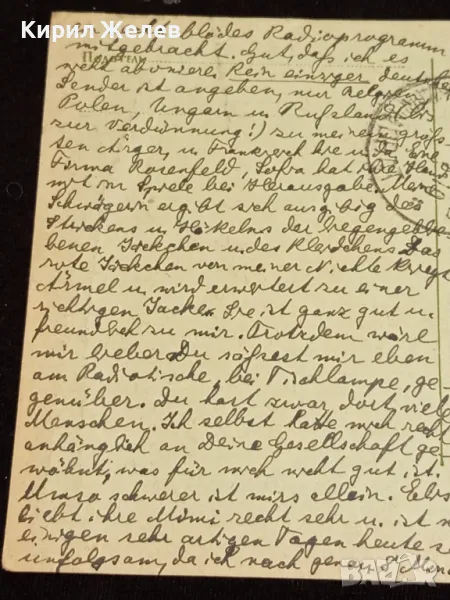 Кирил Желев
blödes Radioprogramm
mitgebracht. Gut, daß ich es
Подател
nicht aboniere. Kein einziger deutscher
Sender ist angeben, nur Belgien
Polen, Ungarn u. Rußland (bis
zur Verdünnung!) zu meinem größ-
sen Ärger, u. Frankreich
Firma Rosenfeld, Sofia hat ihre
mit im Spiele bei Herausgabe. Meine
Schwägerin ergibt sich ausg. big des
Strickens u. Häkelns der liegengeblie-
benen Jäckchen u. des Kleidchens. Das
rote Jäckchen von meiner Nichte kriegt
Ärmel u. wird erweitert zu einer
richtigen Jacke. Sie ist ganz gut u.
freundlich zu mir. Trotzdem wäre
mir lieber Du säßest mir eben
am Radiotische, bei Tischlampe, ge-
genüber. Du hast zwar dort viele
Menschen. Ich selbst hatte mich recht
anhänglich an Deine Gesellschaft ge-
wöhnt, was für mich nicht gut ist.
Umso schwerer ist mirs allein.
liebt ihre Mimi recht sehr u. ist n
einigen sehr artigen Tagen heute s
unfolgsam, da ich nach genau
bazar